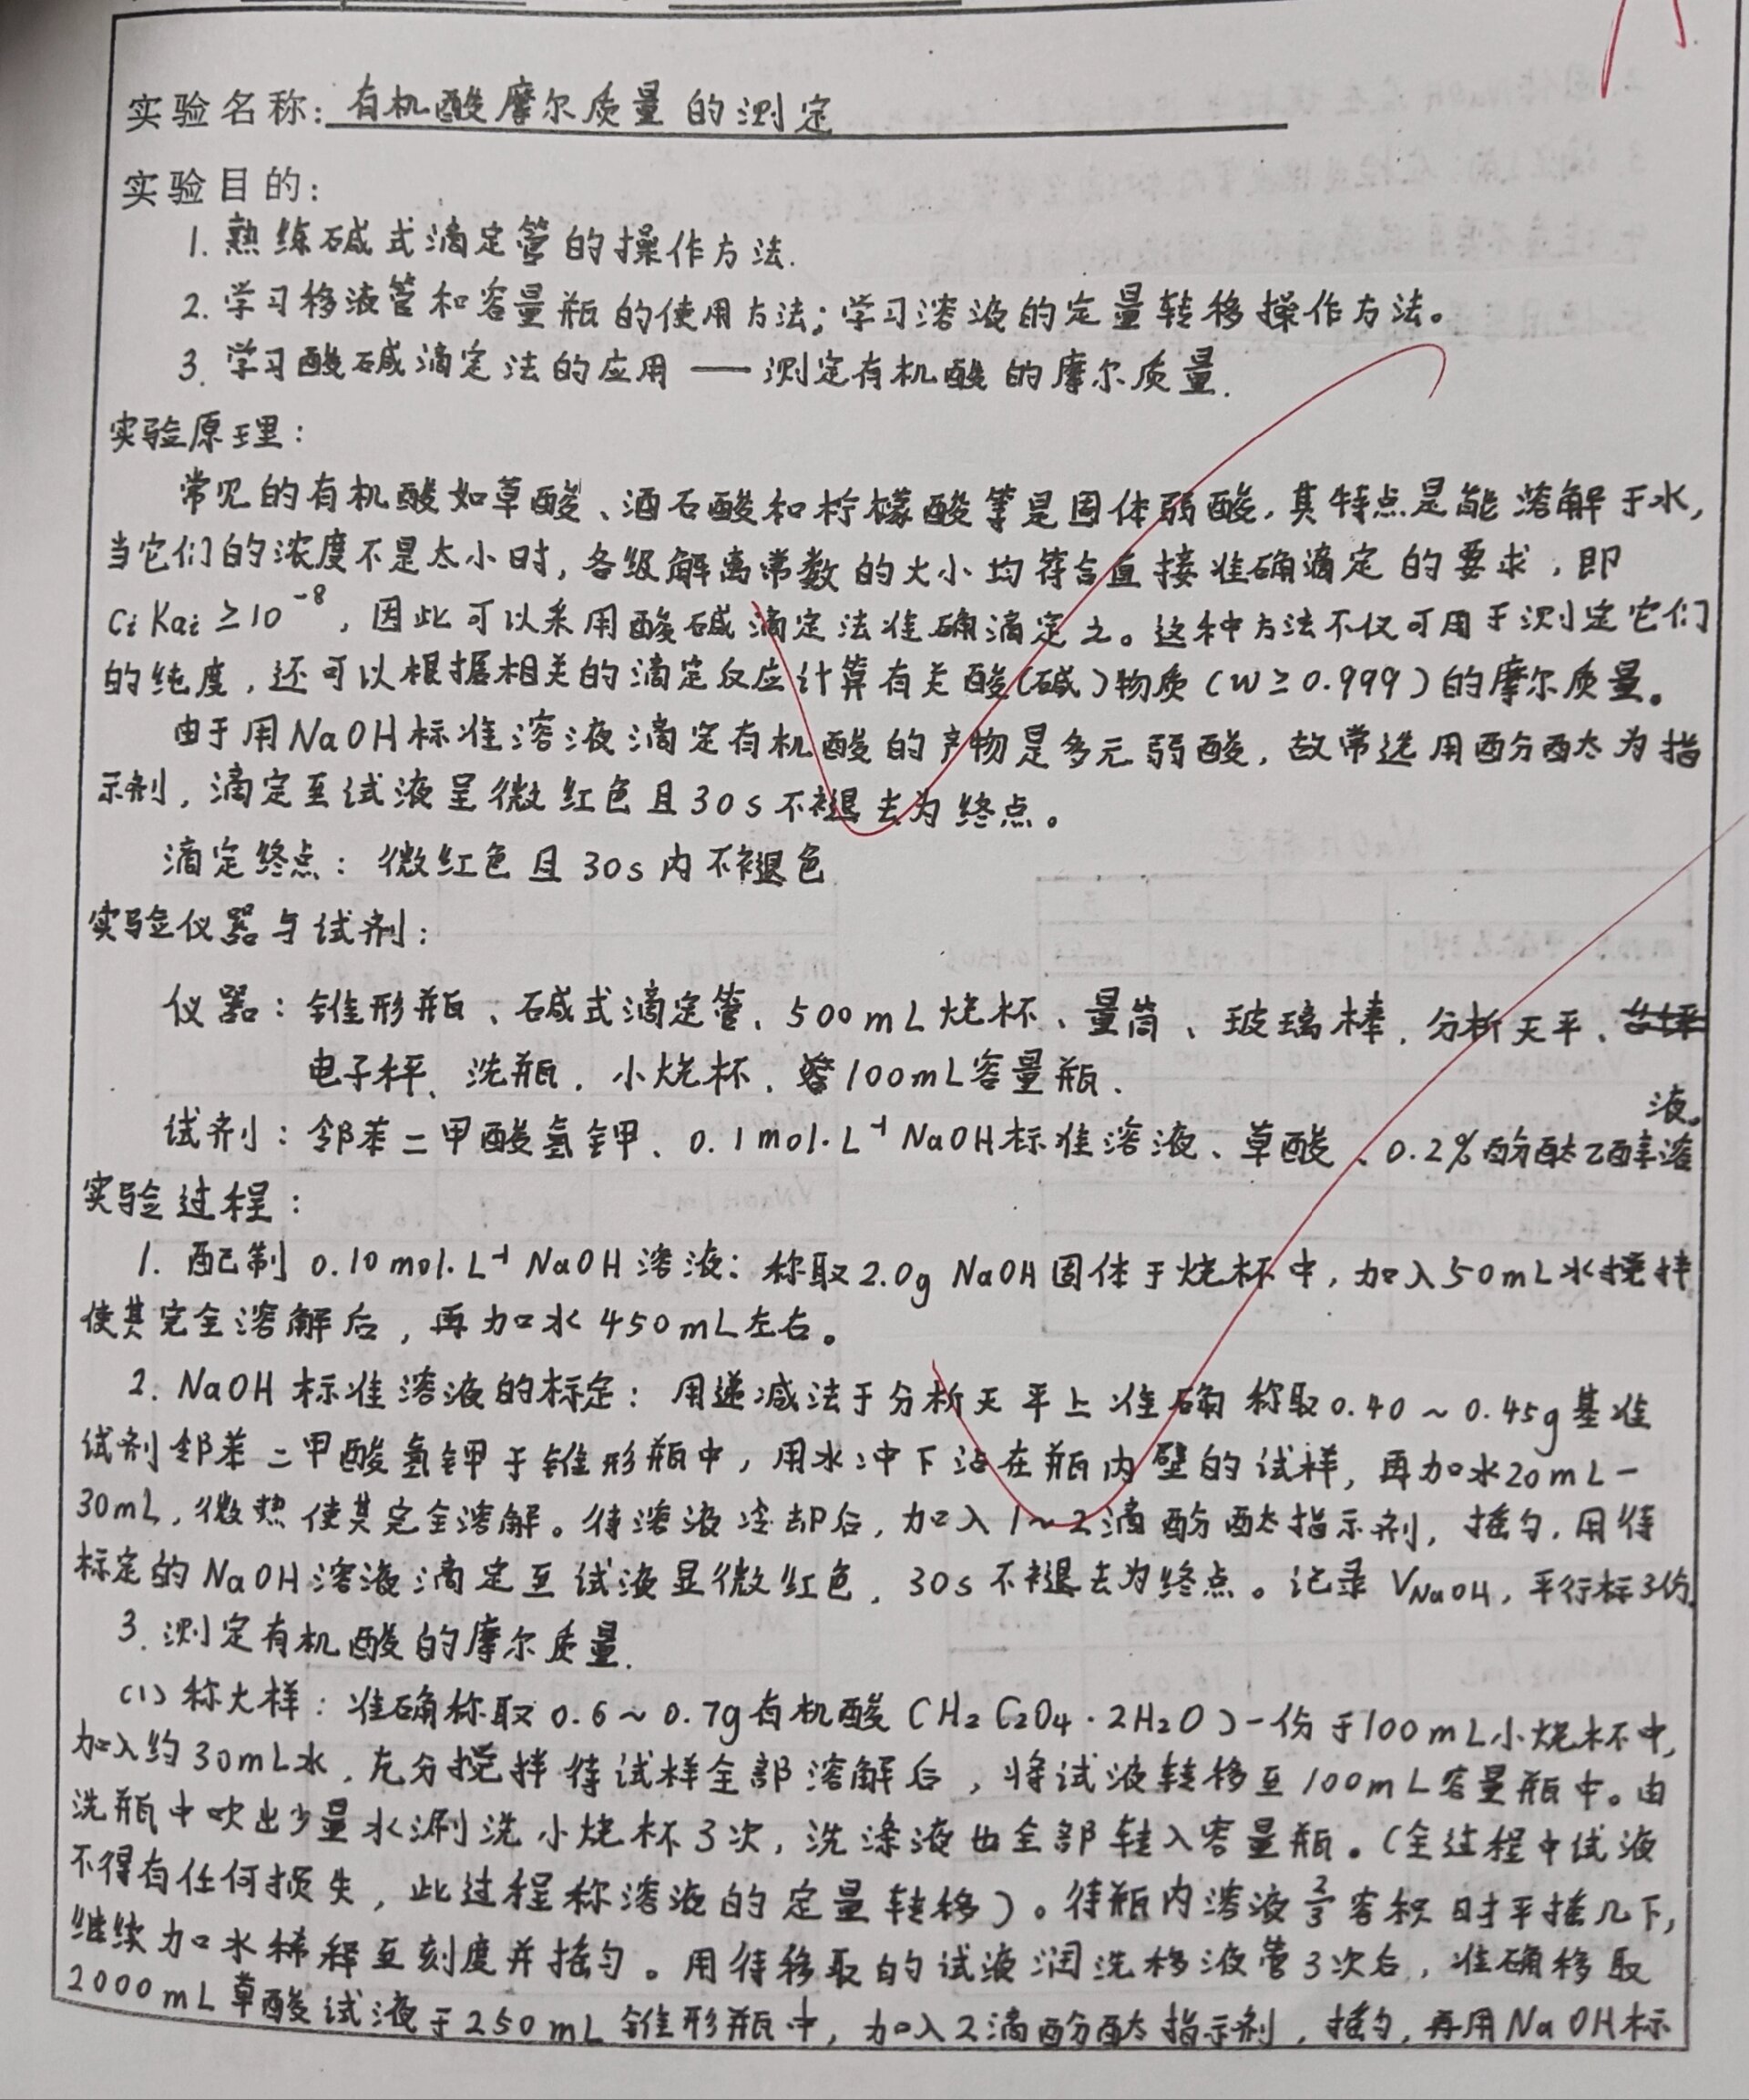 实验名称: 有机酸摩尔质量的测定
实验目的:
1. 熟练碱式滴定管的操作方法.
2. 学习移液管和容量瓶的使用方法; 学习溶液的定量转移操作方法。
3. 学习酸碱滴定法的应用 — 测定有机酸的摩尔质量.
实验原理:
常见的有机酸如草酸、酒石酸和柠檬酸等是固体弱酸, 其特点是能溶解于水,
当它们的浓度不是太小时, 各级解离常数的大小均符合直接准确滴定的要求, 即
CiKai≥10⁻⁸, 因此可以采用酸碱滴定法准确滴定之。这种方法不仅可用于测定它们
的纯度, 还可以根据相关的滴定反应计算有关酸(碱)物质(w≥0.999)的摩尔质量。
由于用NaOH标准溶液滴定有机酸的产物是多元弱酸, 故常选用酚酞为指
示剂, 滴定至试液呈微红色且30s不褪去为终点。
滴定终点: 微红色且30s内不褪色
实验仪器与试剂:
仪器: 锥形瓶、碱式滴定管、500mL烧杯、量筒、玻璃棒, 分析天平、
电子秤、洗瓶. 小烧杯、100mL容量瓶.
液。
试剂: 邻苯二甲酸氢钾、0.1mol·L⁻¹NaOH标准溶液、草酸、0.2%酚酞乙醇溶
实验过程:
1. 配制0.10mol·L⁻¹NaOH溶液: 称取2.0g NaOH固体于烧杯中, 加入50mL水搅拌
使其完全溶解后, 再加水450mL左右。
2. NaOH标准溶液的标定: 用递减法于分析天平上准确称取0.40~0.45g基准
试剂邻苯二甲酸氢钾于锥形瓶中, 用水冲下沾在瓶内壁的试样, 再加水20mL-
30mL, 微热使其完全溶解。待溶液冷却后, 加入1~2滴酚酞指示剂, 摇匀, 用待
标定的NaOH溶液滴定至试液显微红色, 30s不褪去为终点。记录VNaOH, 平行标3份.
3. 测定有机酸的摩尔质量.
(1) 称大样: 准确称取0.6~0.7g有机酸(H₂C₂O₄·2H₂O)一份于100mL小烧杯中,
加入约30mL水, 充分搅拌待试样全部溶解后, 将试液转移至100mL容量瓶中。由
洗瓶中吹出少量水涮洗小烧杯3次, 洗涤液也全部转入容量瓶。(全过程中试液
不得有任何损失, 此过程称溶液的定量转移)。待瓶内溶液2/3容积时平摇几下,
继续加水稀释至刻度并摇匀。用待移取的试液润洗移液管3次后, 准确移取
2000mL草酸试液于250mL锥形瓶中, 加入2滴酚酞指示剂, 摇匀, 再用NaOH标